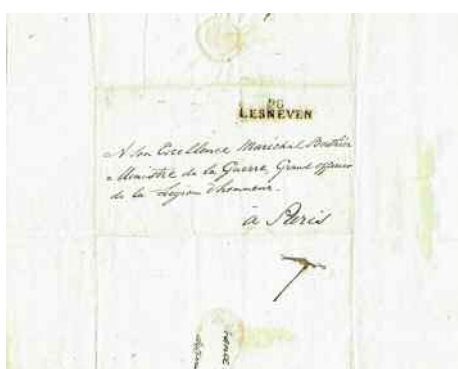 LESNEVEN
A Son Excellence Maréchal
Ministre de la Guerre, Grand officier
de la Légion d'honneur.
à Paris